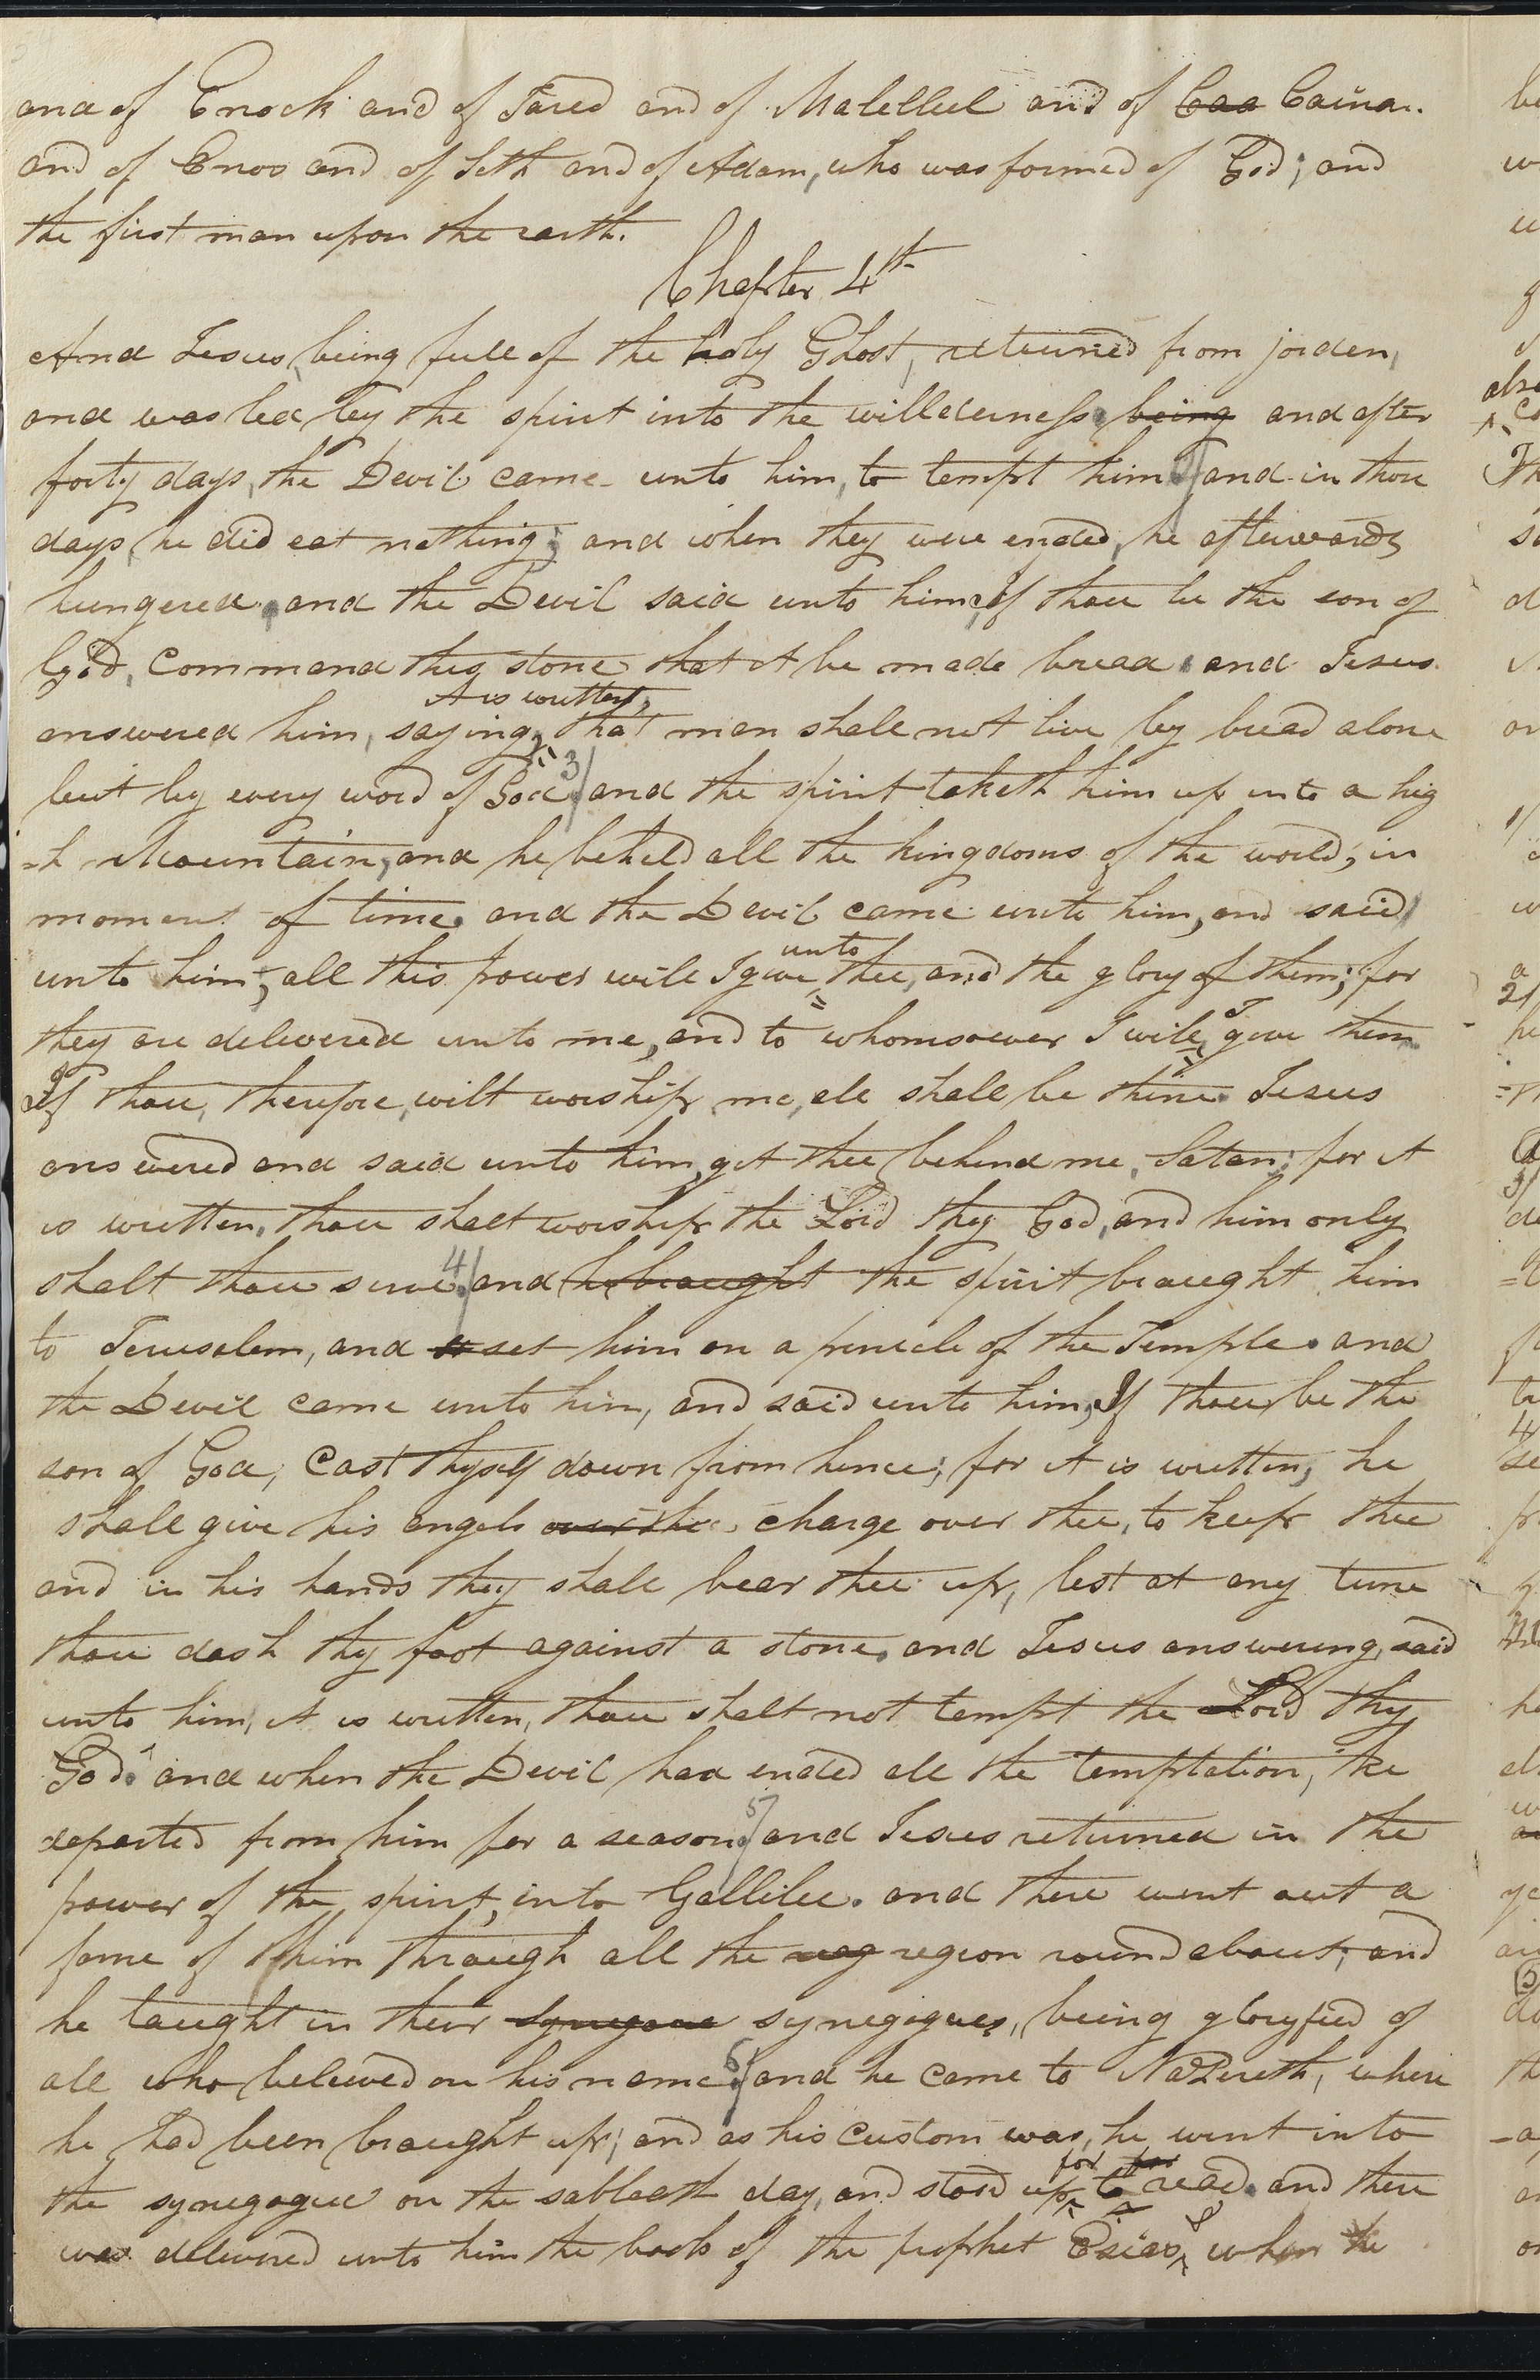 and of Enock and of Jared and of Malelleel and of Caa Cainan.
and of Enos and of Seth and of Adam, who was formed of God; and
the first man upon the earth.
Chapter 4th
And Jesus, being full of the holy Ghost, returned from jorden,
and was led by the spirit into the willderness. being and after
forty days, the Devil came unto him, to tempt him 2/ and in those
days, he did eat nothing; and when they were ended, he afterwards
hungered. and the Devil said unto him, If thou be the son of
God, command this stone that it be made bread. and Jesus
it is written,
answered him, saying, that man shall not live by bread alone
but by every word of God. 3/ and the spirit taketh him up into a hig
-h Mountain, and he beheld all the kingdoms of the world, in
moment of time. and the Devil came unto him, and said
unto
unto him; all this power will I give thee, and the glory of them; for
I
they are delivered unto me, and to whomsoever I will, give them
If thou, therefore, wilt worship me, all shall be thine. Jesus
answered and said unto him, get thee behind me, Satan; for it
is written, thou shalt worship the Lord thy God, and him only
shalt thou serve. 4/ and he braught the spirit braught him
to Jerusalem, and st set him on a penicle of the Temple. and
the Devil came unto him, and said unto him, If thou be the
son of God, cast thyself down from hence; for it is written, he
shall give his angels over thee charge over thee, to keep thee
and in his hands they shall bear thee up, lest at any time
thou dash thy foot against a stone. and Jesus answering, said
unto him, it is written, thou shalt not tempt the Lord thy
God. and when the Devil had ended all the temptation, he
departed from him for a season. 5/ and Jesus returned in the
power of the spirit, into Gallilee. and there went out a
fame of him through all the reg region round about; and
he taught in their synegoue synegogues, being gloryfied of
all who believed on his name. 6/ and he came to Nazereth, where
he had been braught up; and as his custom was, he went into
for for
the synegogue on the sabbath day, and stood up to read. and there
was delivered unto him the book of the prophet Esias, & when he